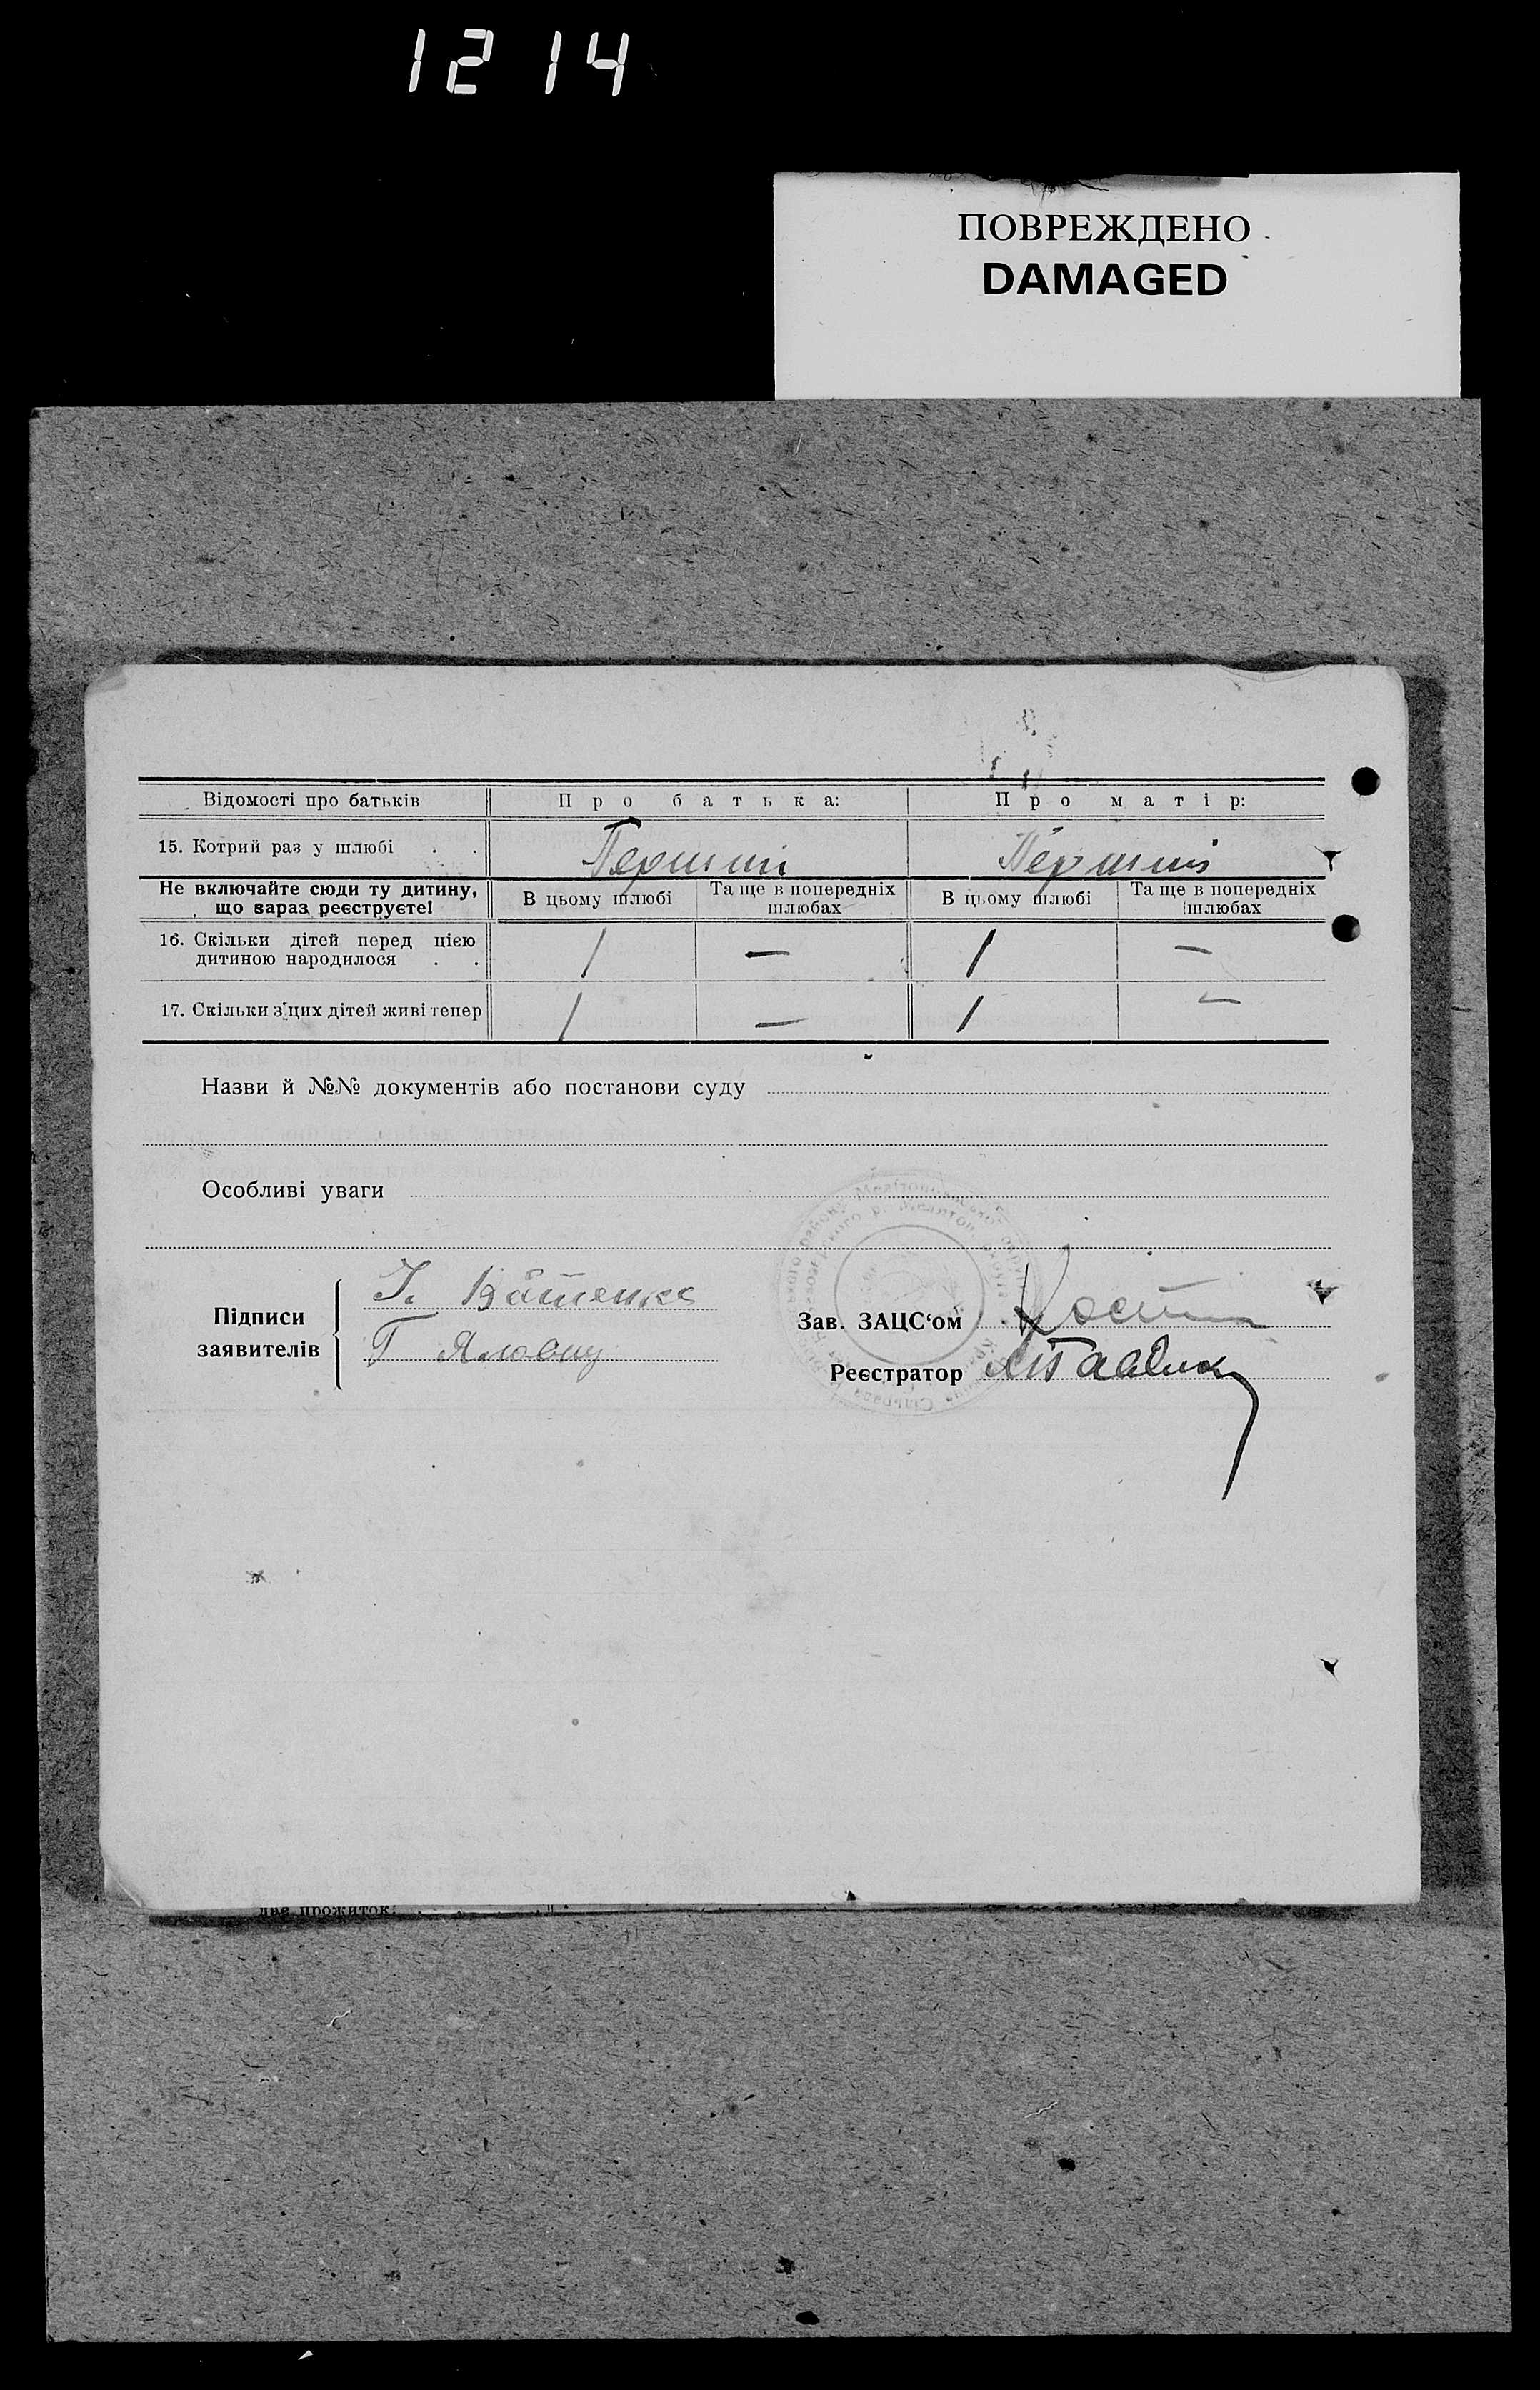 1214
ПОВРЕЖДЕНО
DAMAGED
Відомості про батьків Про батька: Про матір:
15. Котрий раз у шлюбі . . Перший Перший
Не включайте сюди ту дитину, що зараз реєструєте! В цьому шлюбі Та ще в попередніх шлюбах В цьому шлюбі Та ще в попередніх шлюбах
16. Скільки дітей перед цією дитиною народилося . . 1 — 1 —
17. Скільки з цих дітей живі тепер 1 — 1 —
Назви й №№ документів або постанови суду
Особливі уваги
Підписи заявителів
Зав. ЗАЦС‘ом
Реєстратор
Сільрада
прожиток